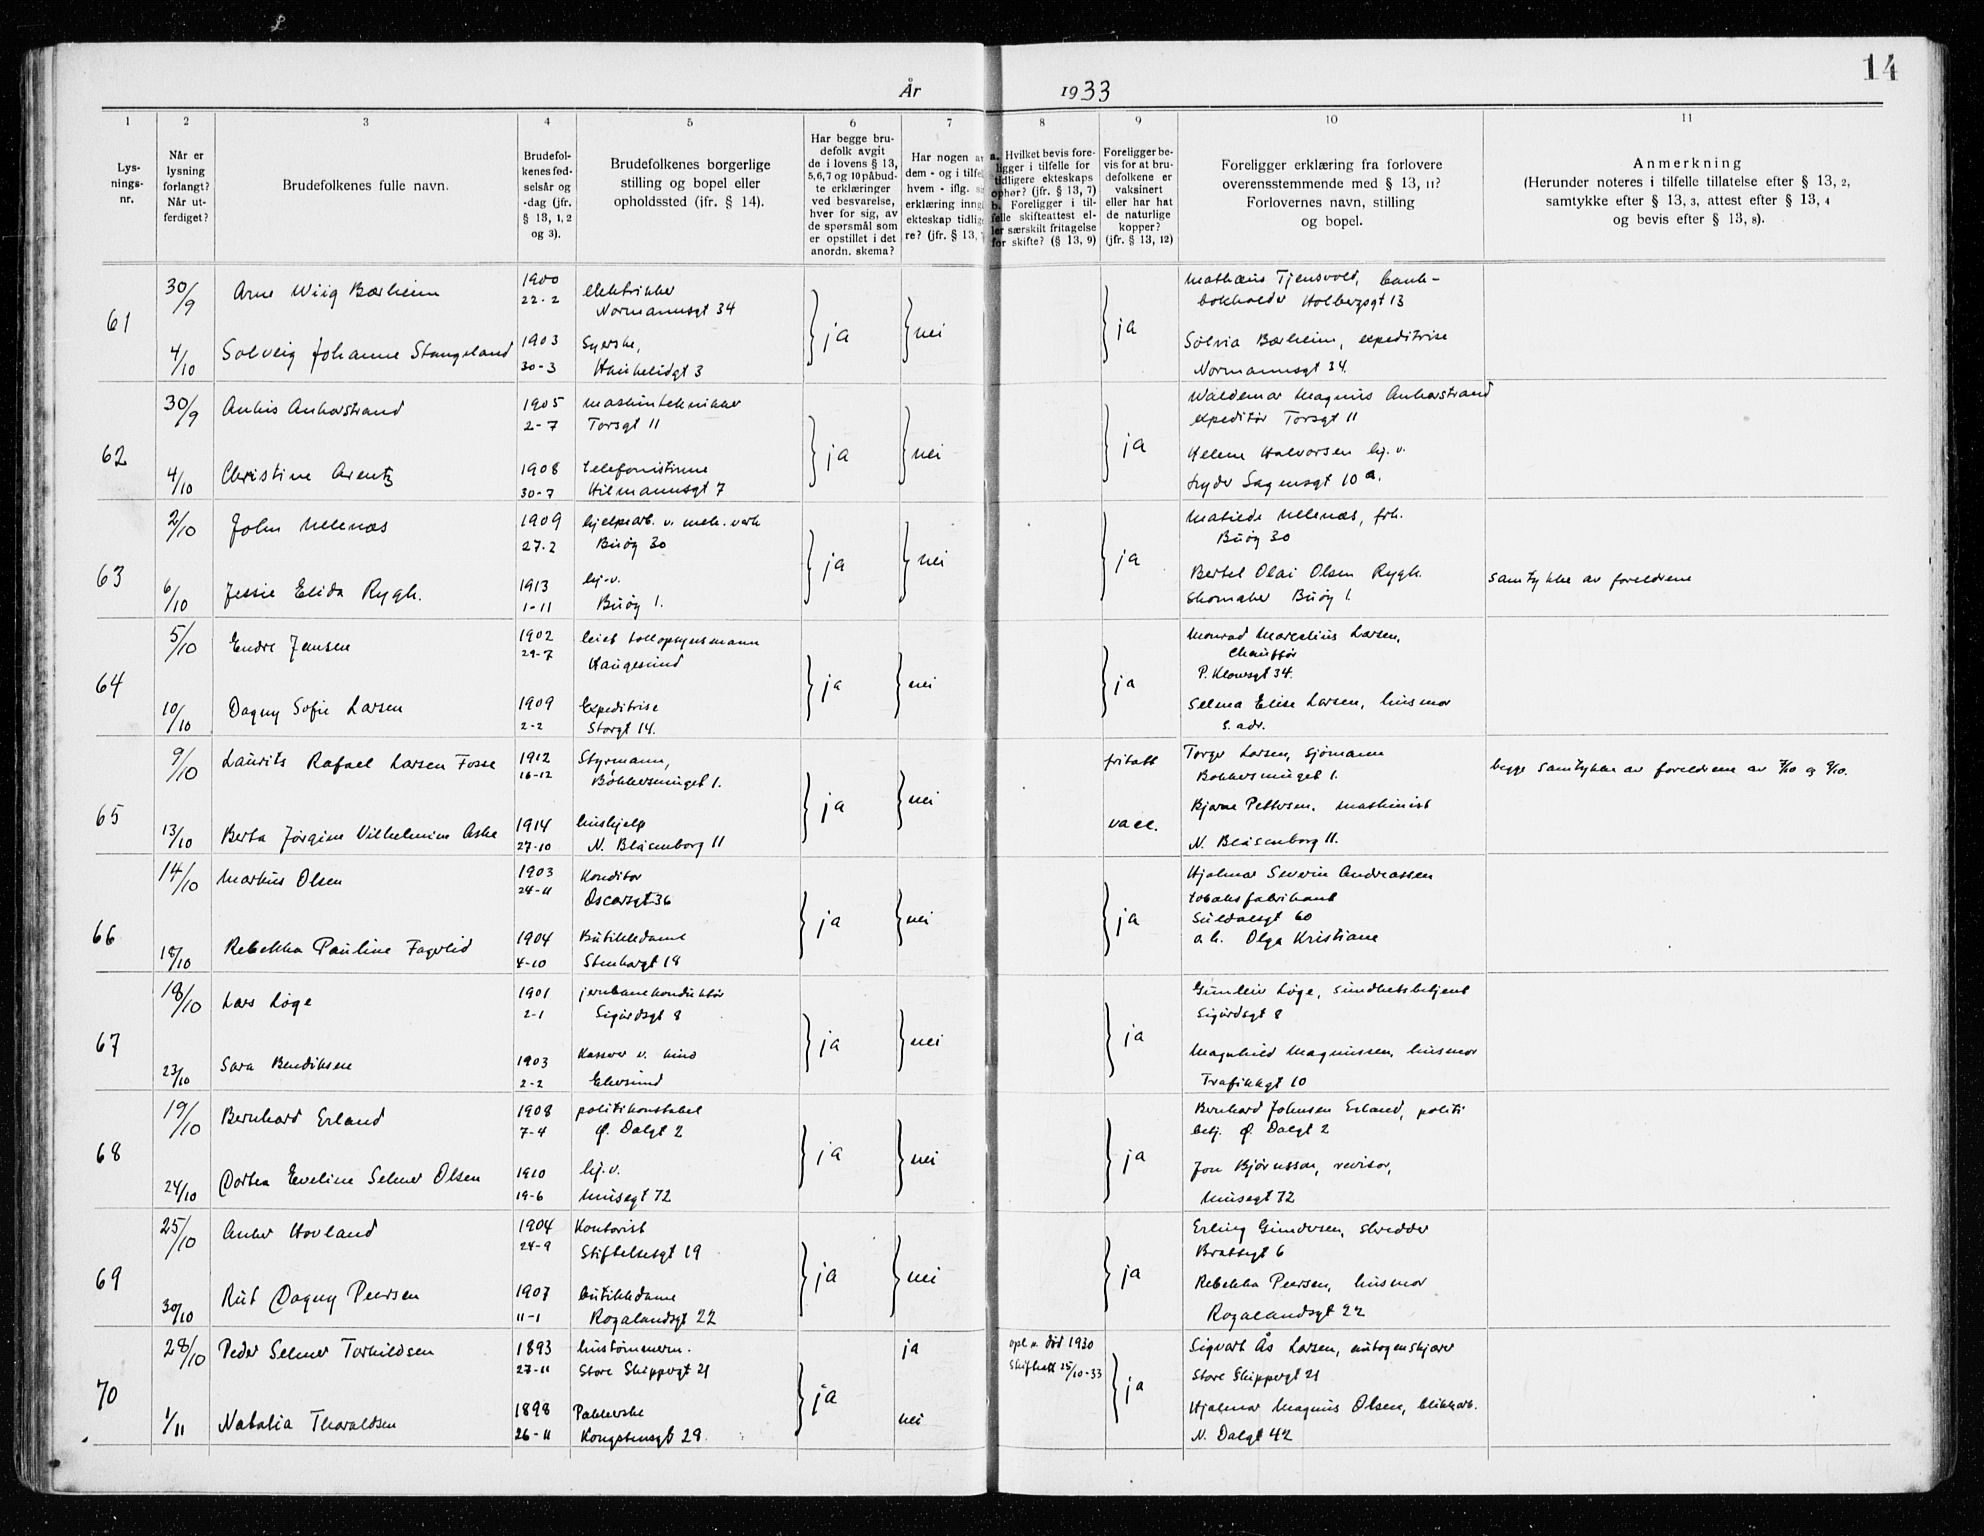 14
År 1933
1 2 3 4 5 6 7 8 9 10 11
Lys-
nings-
nr.
Når er
lysning
forlangt?
Når ut-
ferdiget?
Brudefolkenes fulle navn.
Brudefol-
kenes fød-
selsår og
-dag (jfr.
§ 13, 1, 2
og 3).
Brudefolkenes borgerlige
stilling og bopel eller
opholdssted (ifr. § 14).
Har begge bru-
defolk avgit
de i lovens § 13,
5, 6, 7 og 10 påbud-
te erklæringer
ved besvarelse,
hver for sig, av
de spørsmål som
er opstillet i det
anordn. skema?
Har nogen av
dem - og i tilfel
hvem - iflg. s
erklæring inng
ekteskap tidlig
re? (jfr. § 13,
a. Hvilket bevis fore-
ligger i tilfelle for
tidligere ekteskaps
ophør? (jfr. § 13, 7)
b. Foreligger i til-
felle skifteattest el-
ler særskilt fritagelse
for skifte? (§ 13, 9)
Foreligger be-
vis for at bru-
defolkene er
vaksinert
eller har hat
de naturlige
kopper?
(jfr. § 13, 12)
Foreligger erklæring fra forlovere
overensstemmende med § 13, 11?
Forlovernes navn, stilling
og bopel.
Anmerkning
(Herunder noteres i tilfelle tillatelse efter § 13, 2,
samtykke efter § 13, 3, attest efter § 13, 4
og bevis efter § 13, 8).
61
30/9 Arne Wiig Bærheim 1900 elektriker
22-2 Normannsgt 34
4/10 Solveig Johanne Stangeland 1903 Syerske,
30-3 Haukelidgt 3
ja nei ja
Mathæus Tjensvold, bank-
bokholder Holbergsgt 13
Solvia Bærheim, expeditrise
Normannsgt 34.
62
30/9 Ankis Ankerstrand 1905 maskintekniker
2-7 Torsgt 11
4/10 Christine Arentz 1908 telefonistinne
30-7 Hilmannsgt 7
ja nei ja
Waldemar Magnus Ankerstrand
expeditør Torsgt 11
Helene Halvorsen hj. v.
Lyder Sagensgt 10 a.
63
2/10 John Melenæs 1909 hjelpearb. v. mek. verk
27-2 Buøy 30
6/10 Jessie Elida Rygh. 1913 hj.v.
1-11 Buøy 1.
ja nei ja
Matilde Melenæs, frk.
Buøy 30
Bertel Olai Olsen Rygh.
skomaker Buøy 1.
samtykke av foreldrene
64
5/10 Endre Jensen 1902 leiet tolloppsynsmann
29-7 Haugesund
10/10 Dagny Sofie Larsen 1909 Expeditrise
2-2 Storgt 14.
ja nei ja
Monrad Marselius Larsen,
Chauffør
P. Klowsgt 34.
Selma Elise Larsen, husmor
s. adr.
65
9/10 Laurits Rafael Larsen Fosse 1912 Styrmann,
16-12 Bøkkersmuget 1.
13/10 Berta Jørgine Vilhelmine Aske 1914 hushjelp
27-10 N. Blåsenborg 11
ja nei fritatt
vacc.
Torger Larsen, sjømann
Bokkersmuget 1.
Bjarne Pettersen, maskinist
N. Blåsenborg 11.
begge samtykke av foreldrene av 7/10 og 9/10.
66
14/10 Markus Olsen 1903 Konditor
24-11 Oscarsgt 36
18/10 Rebekka Pauline Fagerlid 1904 Butikkdame
4-10 Stenhargt 18
ja nei ja
Hjalmar Severin Andreassen
tobaksfabrikant
Suldalsgt 60
a.h. Olga Kristiane
67
18/10 Lars Løge 1901 jernbanekonduktør
2-1 Sigurdsgt 8
23/10 Sara Bendiksen 1903 Kasserer v. kino
2-2 Ekersund
ja nei ja
Gunleiv Løge, sundhetsbetjent
Sigurdsgt 8
Magnhild Magnussen, husmor
Trafikkgt 10
68
19/10 Bernhard Erland 1908 politikonstabel
7-4 Ø. Dalgt 2
24/10 Dortea Eveline Selmer Olsen 1910 hj.v.
19-6 Musegt 72
ja nei ja
Bernhard Johnsen Erland, politi
betj. Ø Dalgt 2
Jon Bjørnsson, revisor,
Musegt 72
69
25/10 Anker Hovland 1904 Kontorist
24-9 Stiftelsesgt 19
30/10 Rut Dagny Peersen 1907 butikkdame
11-1 Rogalandsgt 22
ja nei ja
Erling Gundersen, skredder
Brattegt 6
Rebekka Peersen, husmor
Rogalandsgt 22
70
28/10 Peder Selmer Torkildsen 1893 hustømmerm.
27-11 Store Skippergt 21
1/11 Natalia Tharaldsen 1898 Pakkerske
26-11 Kongstensgt 29.
ja ja
nei
opl. v. død 1930
Skifteatt 25/10-33
ja
Sigvart Ås Larsen, utbogenskjærer
Store Skippergt 21
Hjalmar Magnus Olsen, blikkarb.
N. Dalgt 42